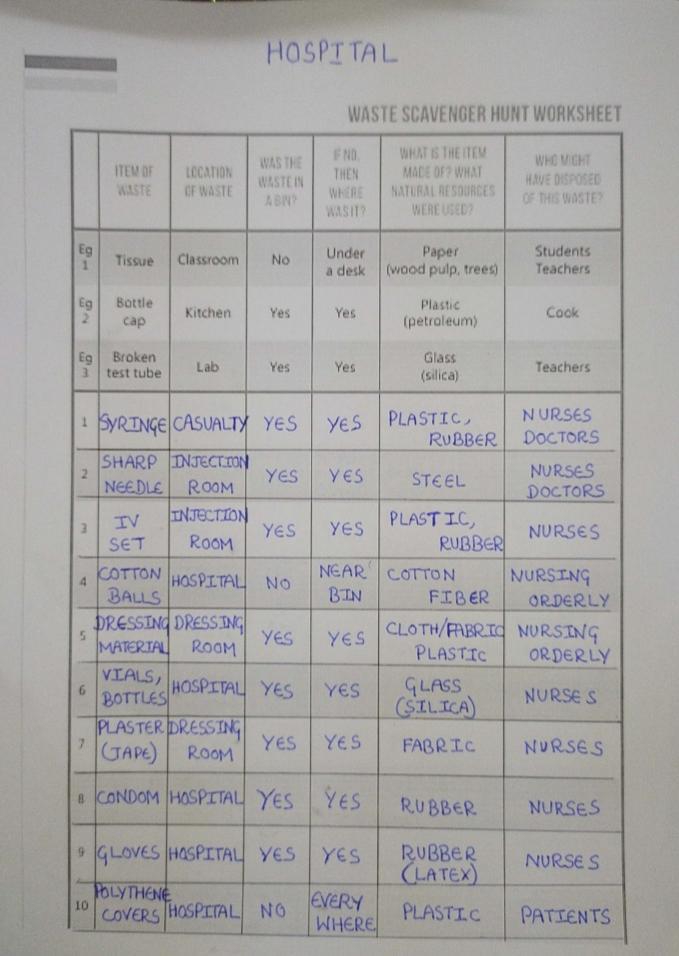 HOSPITAL
WASTE SCAVENGER HUNT WORKSHEET
ITEM OF WASTE | LOCATION OF WASTE | WAS THE WASTE IN A BIN? | IF NO, THEN WHERE WAS IT? | WHAT IS THE ITEM MADE OF? WHAT NATURAL RESOURCES WERE USED? | WHO MIGHT HAVE DISPOSED OF THIS WASTE?
Eg 1 | Tissue | Classroom | No | Under a desk | Paper (wood pulp, trees) | Students Teachers
Eg 2 | Bottle cap | Kitchen | Yes | Yes | Plastic (petroleum) | Cook
Eg 3 | Broken test tube | Lab | Yes | Yes | Glass (silica) | Teachers
1 | SYRINGE | CASUALTY | YES | YES | PLASTIC, RUBBER | NURSES DOCTORS
2 | SHARP NEEDLE | INJECTION ROOM | YES | YES | STEEL | NURSES DOCTORS
3 | IV SET | INJECTION ROOM | YES | YES | PLASTIC, RUBBER | NURSES
4 | COTTON BALLS | HOSPITAL | NO | NEAR BIN | COTTON FIBER | NURSING ORDERLY
5 | DRESSING MATERIAL | DRESSING ROOM | YES | YES | CLOTH/FABRIC PLASTIC | NURSING ORDERLY
6 | VIALS, BOTTLES | HOSPITAL | YES | YES | GLASS (SILICA) | NURSES
7 | PLASTER (TAPE) | DRESSING ROOM | YES | YES | FABRIC | NURSES
8 | CONDOM | HOSPITAL | YES | YES | RUBBER | NURSES
9 | GLOVES | HOSPITAL | YES | YES | RUBBER (LATEX) | NURSES
10 | POLYTHENE COVERS | HOSPITAL | NO | EVERY WHERE | PLASTIC | PATIENTS